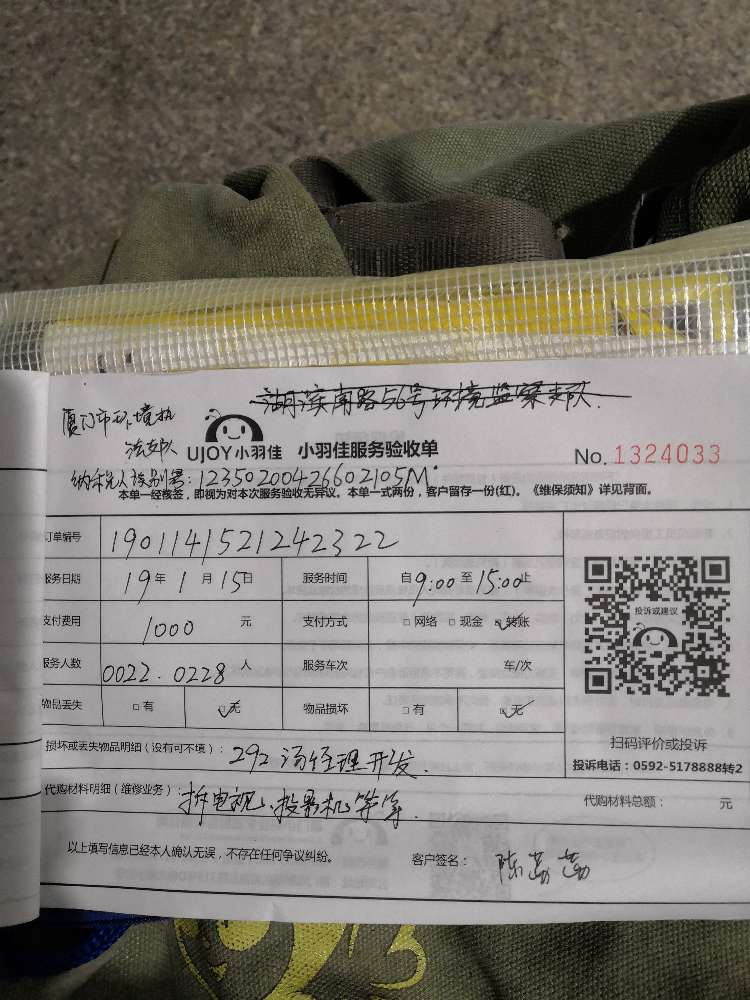 湖滨南路56号环境监察支队.
厦门市环境执
法支队
UJOY小羽佳 小羽佳服务验收单
No. 1324033
纳税人识别号: 12350200426602105M
本单一经核签，即视为对本次服务验收无异议。本单一式两份，客户留存一份(红)。《维保须知》详见背面。
订单编号 1901141521242322
服务日期 19年1月15日 服务时间 自9:00至15:00止
支付费用 1000 元 支付方式 □网络 □现金 ☑转账
服务人数 0022.0228人 服务车次 车/次
物品丢失 □有 ☑无 物品损坏 □有 ☑无
投诉或建议
扫码评价或投诉
投诉电话：0592-5178888转2
损坏或丢失物品明细（没有可不填）： 292汤经理开发.
代购材料明细（维修业务）： 拆电视、投影机等等. 代购材料总额： 元
以上填写信息已经本人确认无误，不存在任何争议纠纷。 客户签名：